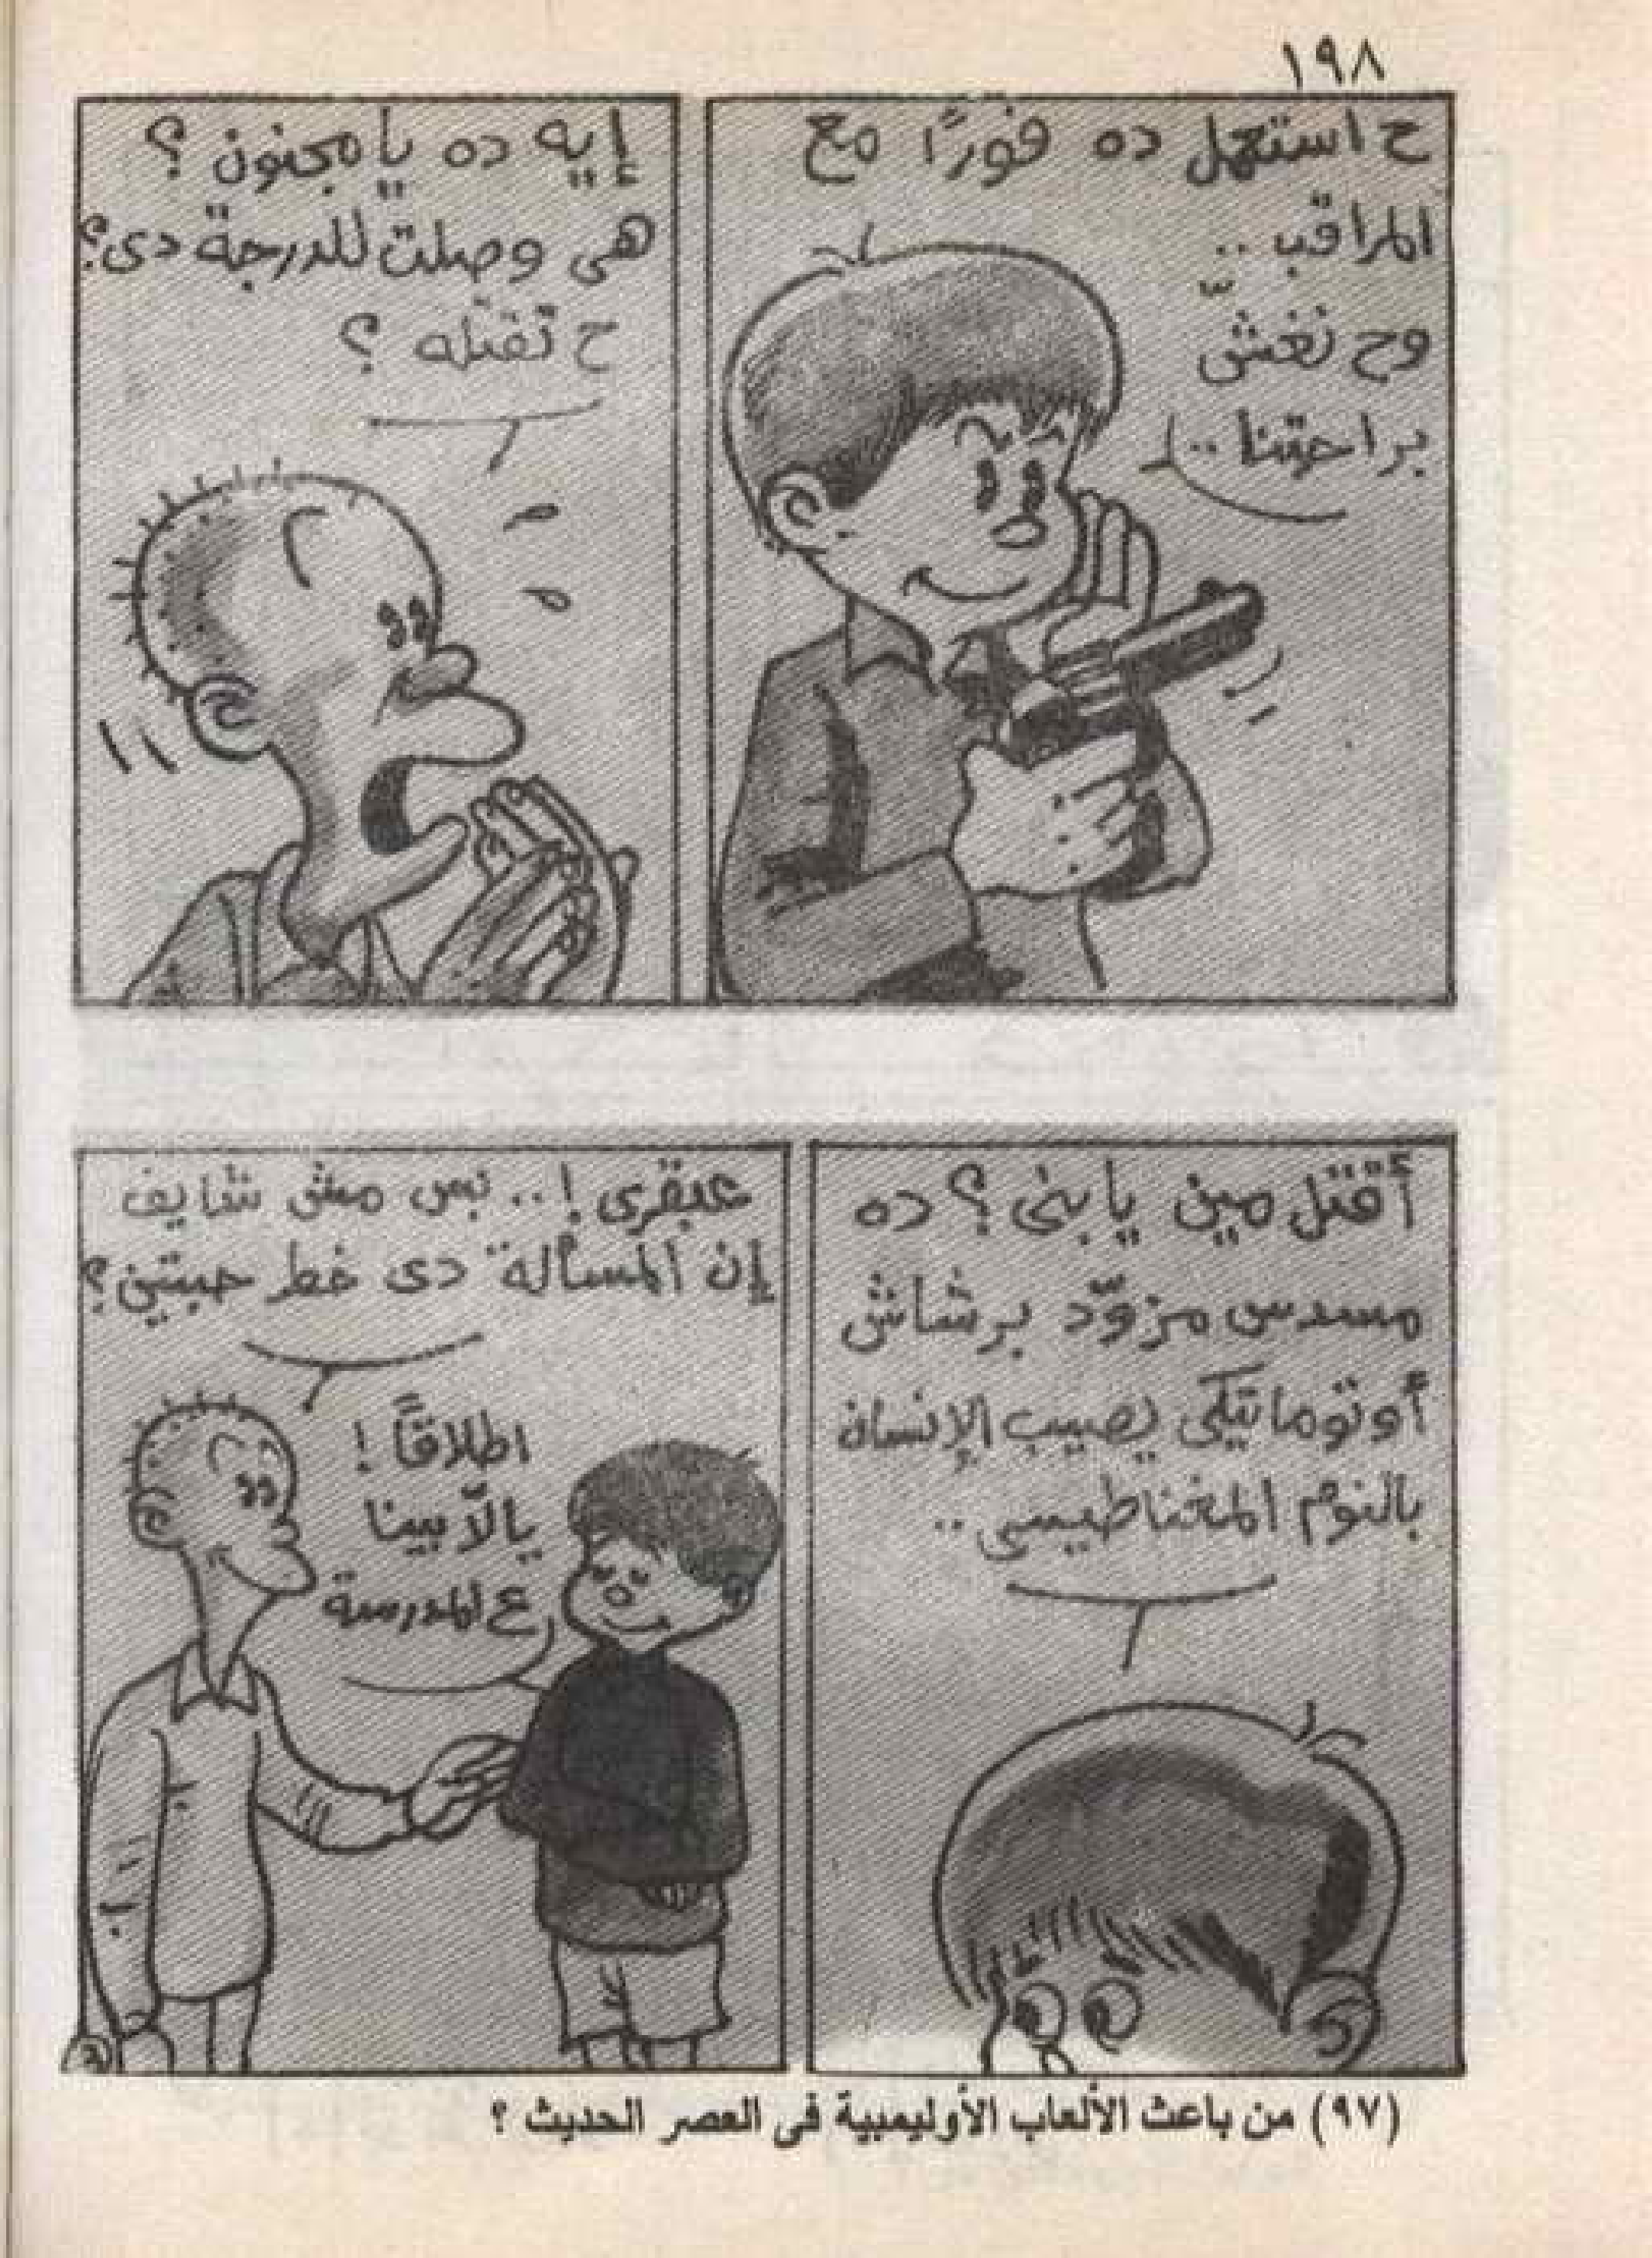 ١٩٨
ح استعمل ده فورًا مع
المراقب ..
وح نغشّ
براحتنا ..!
إيه ده يا مجنون ؟
هى وصلت للدرجة دى؟
ح تقتله ؟
أقتل مين يا بنى ؟ ده
مسدس مزوّد برشاش
أوتوماتيكى يصيب الإنسان
بالنوم المغناطيسى ..
عبقرى !.. بس مش شايف
إن المسألة دى خطر حبتين؟
اطلاقًا !
يالّا بينا
ع المدرسة
(٩٧) من باعث الألعاب الأوليمبية فى العصر الحديث ؟